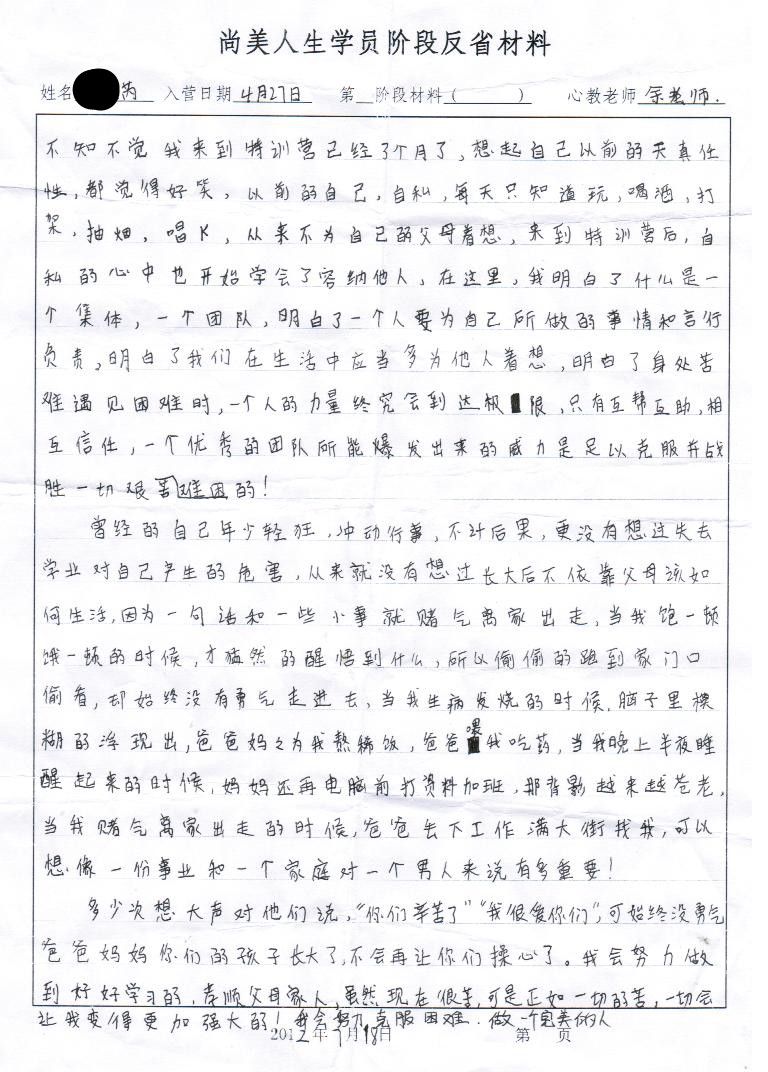 尚美人生学员阶段反省材料
姓名 芮 入营日期 4月27日 第 阶段材料( ) 心教老师 余老师.
不知不觉我来到特训营已经3个月了，想起自己以前的天真任
性，都觉得好笑，以前的自己，自私，每天只知道玩，喝酒，打
架，抽烟，唱K，从来不为自己的父母着想，来到特训营后，自
私的心中也开始学会了容纳他人，在这里，我明白了什么是一
个集体，一个团队，明白了一个人要为自己所做的事情和言行
负责，明白了我们在生活中应当多为他人着想，明白了身处苦
难遇见困难时，一个人的力量终究会到达极限，只有互帮互助，相
互信任，一个优秀的团队所能爆发出来的威力是足以克服并战
胜一切艰苦难困的！
曾经的自己年少轻狂，冲动行事，不计后果，更没有想过失去
学业对自己产生的危害，从来就没有想过长大后不依靠父母该如
何生活，因为一句话和一些小事就赌气离家出走，当我饱一顿
饿一顿的时候，才猛然的醒悟到什么，所以偷偷的跑到家门口
偷看，却始终没有勇气走进去，当我生病发烧的时候，脑子里模
糊的浮现出，爸爸妈々为我熬稀饭，爸爸喂我吃药，当我晚上半夜睡
醒起来的时候，妈妈还再电脑前打资料加班，那背影越来越苍老，
当我赌气离家出走的时候，爸爸丢下工作满大街找我，可以
想像一份事业和一个家庭对一个男人来说有多重要！
多少次想大声对他们说，“你们辛苦了”“我很爱你们”，可始终没勇气
爸爸妈妈你们的孩子长大了，不会再让你们操心了。我会努力做
到好好学习的，孝顺父母家人，虽然现在很苦，可是正如一切的苦，一切会
让我变得更加强大的！我会努力克服困难．做一个完美的人
2012年7月18日 第 页